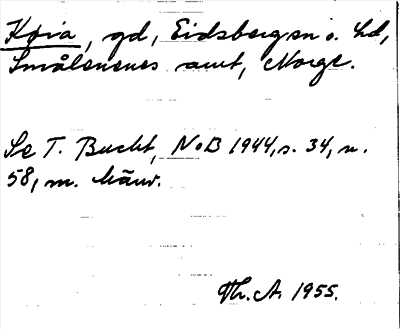 Køia, gd, Eidsberg sn o. hd,
Smålenenes amt, Norge.
Se T. Bucht, NoB 1944, s. 34, n.
58, m. hänv.
Th. A. 1955.